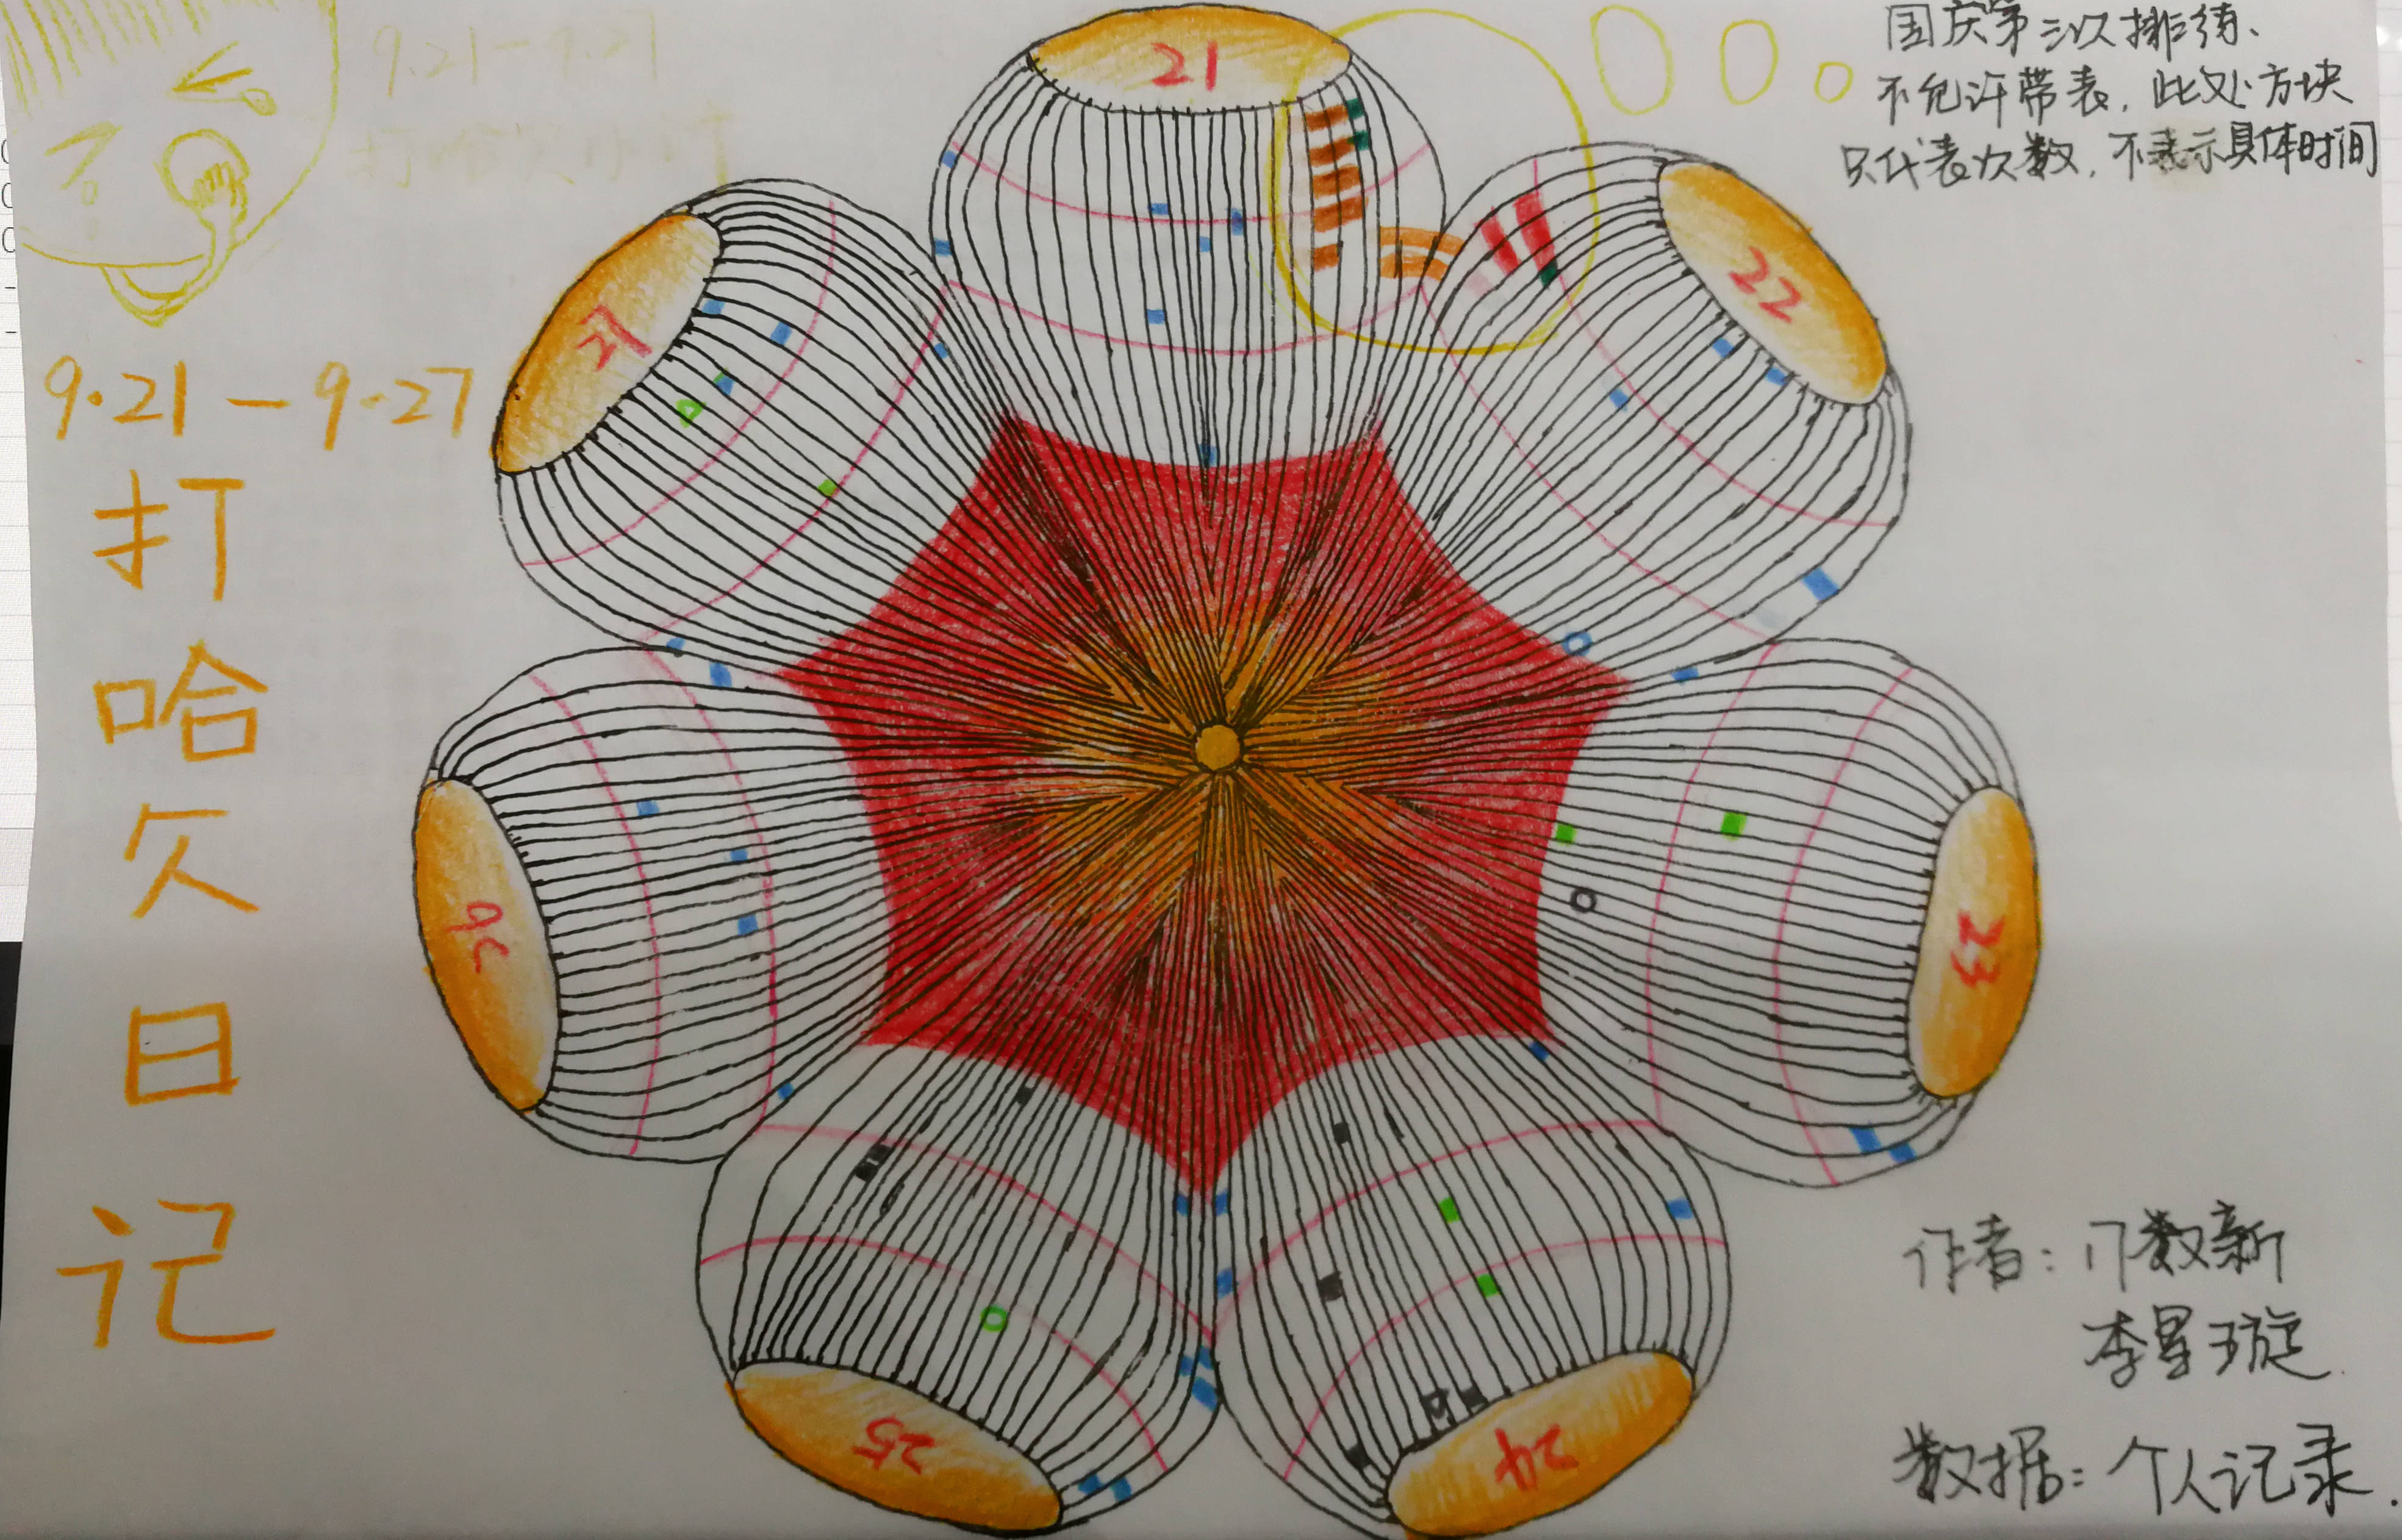 9.21-9.27
打哈欠小汁
9.21-9.27
打
哈
欠
日
记
国庆第三次排练、
不允许带表,此处方块
只代表次数,不表示具体时间
21
22
23
24
25
26
27
作者:17数新
李星璇
数据:个人记录.